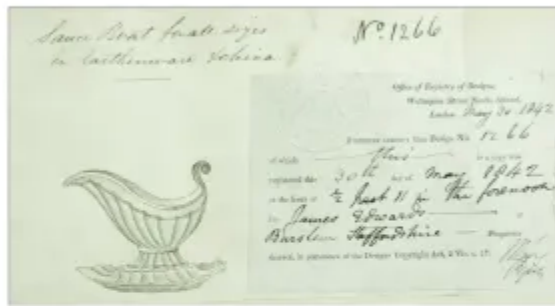 Sauce Boat for all sizes
in Earthenware & china
No. 1266
Office of Registry of Designs,
London May 30 1842
Design No. 1266
of which this is a copy was
registered this 30th day May 1842
at the hour of ½ past 11 in the forenoon
James Edwards
Burslem Staffordshire Proprietor
in pursuance of the Designs Copyright Act, 2 Vic. c. 17.